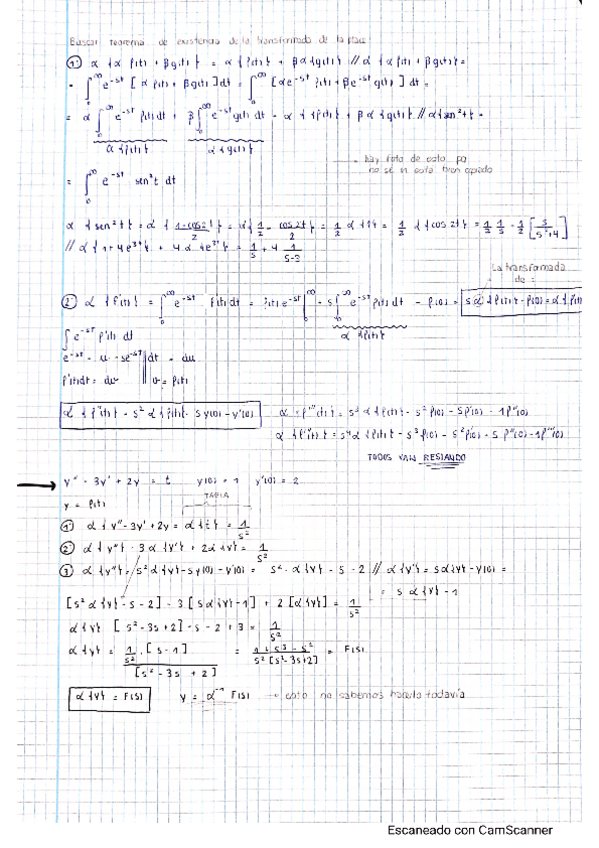 Buscar teorema de existencia de la transformada de la place:
① α {α f(t) + β g(t)} = α {f(t)} + β α {g(t)} // α {α f(t) + β g(t)} =
= ∫₀^∞ e^-st [α f(t) + β g(t)] dt = ∫₀^∞ [α e^-st f(t) + β e^-st g(t)] dt =
= α ∫₀^∞ e^-st f(t) dt + β ∫₀^∞ e^-st g(t) dt = α {f(t)} + β α {g(t)} // α {sen² t} =
α {f(t)} α {g(t)}
→ hay foto de esto pq
no sé si está bien copiado
= ∫₀^∞ e^-st sen² t dt
α {sen² t} = α {(1-cos 2t)/2} = α {1/2 - cos 2t/2} = 1/2 α {1} = 1/2 α {cos 2t} = 1/2 1/s - 1/2 [s/(s²+4)]
// α {1+4e^3t} + 4 α {e^3t} = 1/s + 4 1/(s-3)
La transformada
de :
② α {f'(t)} = ∫₀^∞ e^-st f'(t) dt = f(t) e^-st |₀^∞ - s ∫₀^∞ e^-st f(t) dt - f(0) = s α {f(t)} - f(0) = α {f'(t)
α {f(t)}
∫ e^-st f'(t) dt
e^-st = u -se^-st dt = du
f'(t) dt = dv v = f(t)
α {f''(t)} = s² α {f(t)} - s y(0) - y'(0)
α {f'''(t)} = s³ α {f(t)} - s² f(0) - s f'(0) - 1 f''(0)
α {f''''(t)} = s⁴ α {f(t)} - s³ f(0) - s² f'(0) - s f''(0) - 1 f'''(0)
TODOS VAN RESTANDO
→ y'' - 3y' + 2y = t y(0) = 1 y'(0) = 2
TABLA
y = f(t)
① α {y'' - 3y' + 2y} = α {t} = 1/s²
② α {y''} - 3 α {y'} + 2 α {y} = 1/s²
③ α {y''} = s² α {y} - s y(0) - y'(0) = s² · α {y} - s - 2 // α {y'} = s α {y} - y(0) =
= s α {y} - 1
[s² α {y} - s - 2] - 3 [s α {y} - 1] + 2 [α {y}] = 1/s²
α {y} [s² - 3s + 2] - s - 2 + 3 = 1/s²
α {y} = (1/s² + [s - 1]) / [s² - 3s + 2] = (1 + s³ - s²) / (s² [s² - 3s + 2]) = F(s)
α {y} = F(s) y = α^-1 F(s) → esto no sabemos hacerlo todavía
Escaneado con CamScanner